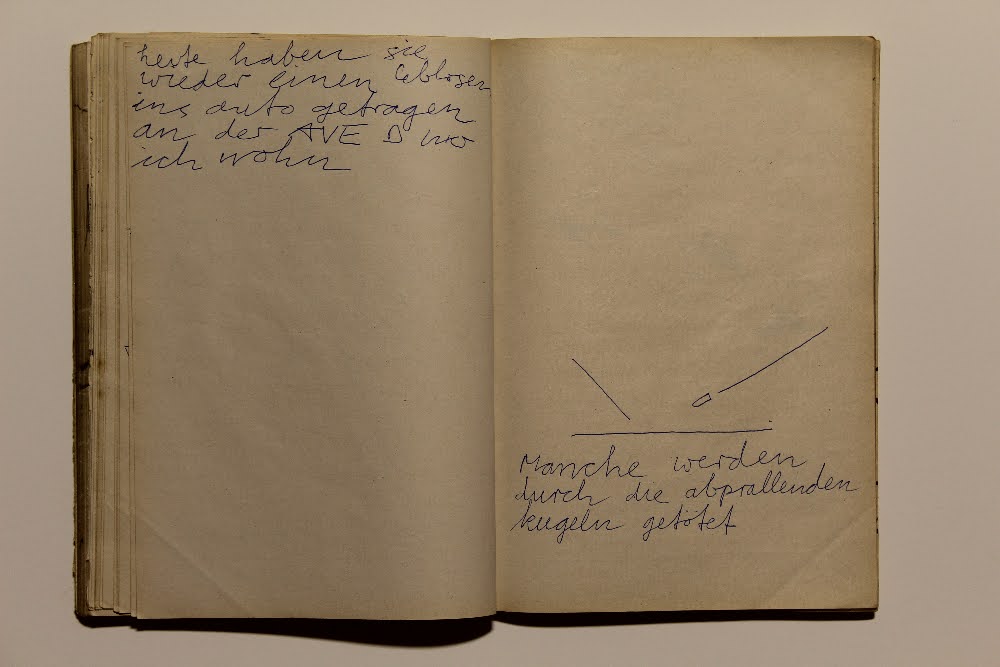 heute haben sie
wieder einen leblosen
ins auto getragen
an der AVE D wo
ich wohn
Manche werden
durch die abprallenden
kugeln getötet